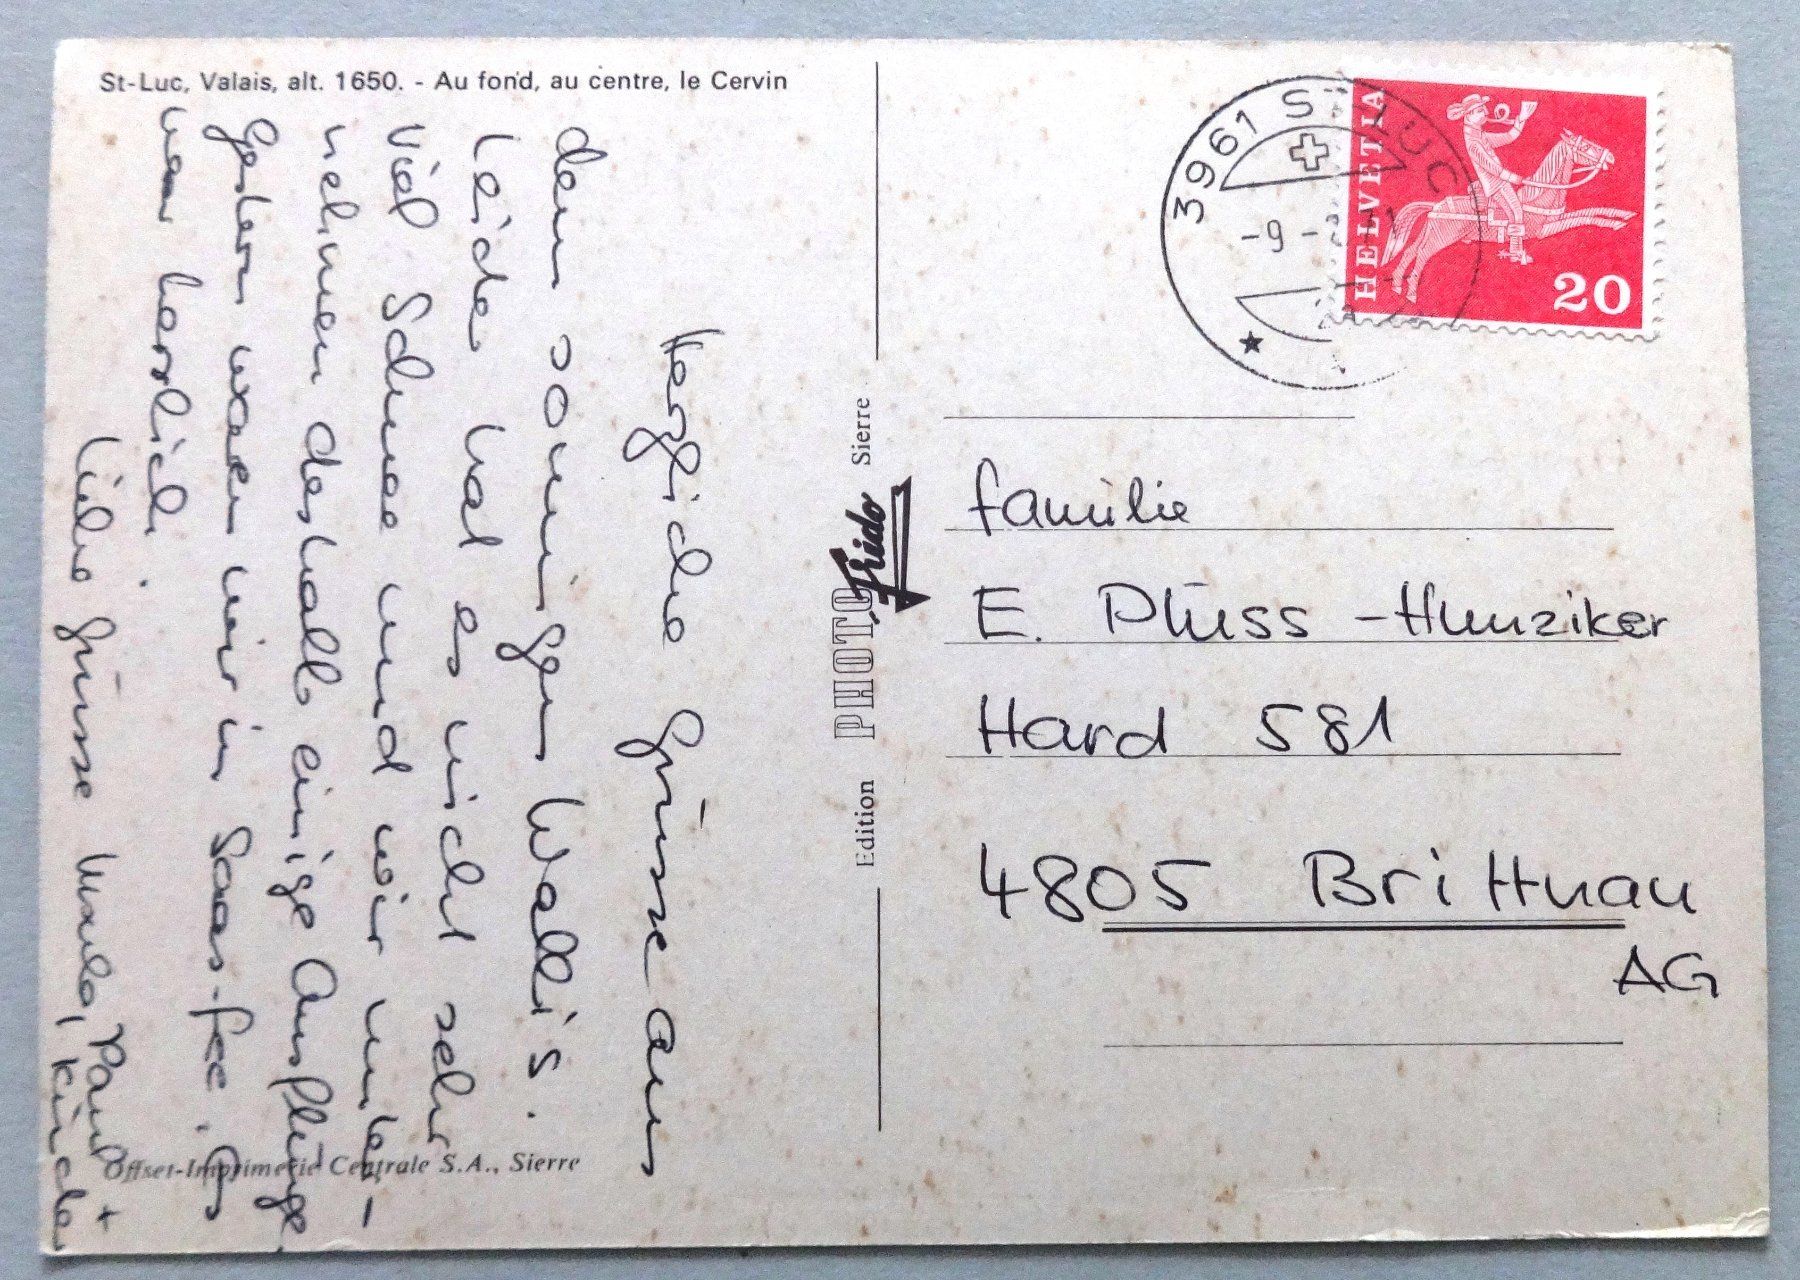 St-Luc, Valais, alt. 1650. - Au fond, au centre, le Cervin
Herzliche Grüsse aus
dem sonnigen Wallis.
Leider hat es nicht sehr
viel Schnee und wir unter-
nehmen deshalb einige Ausflüge
Gestern waren wir in Saas-Fee. Es
war herrlich.
Liebe Grüsse Paul +
Kinder
Offset-Imprimerie Centrale S.A., Sierre
Edition PHOTO Frido Sierre
3961 ST-LUC
-9.-
HELVETIA
20
Familie
E. Plüss-Hunziker
Hard 581
4805 Brittnau
AG